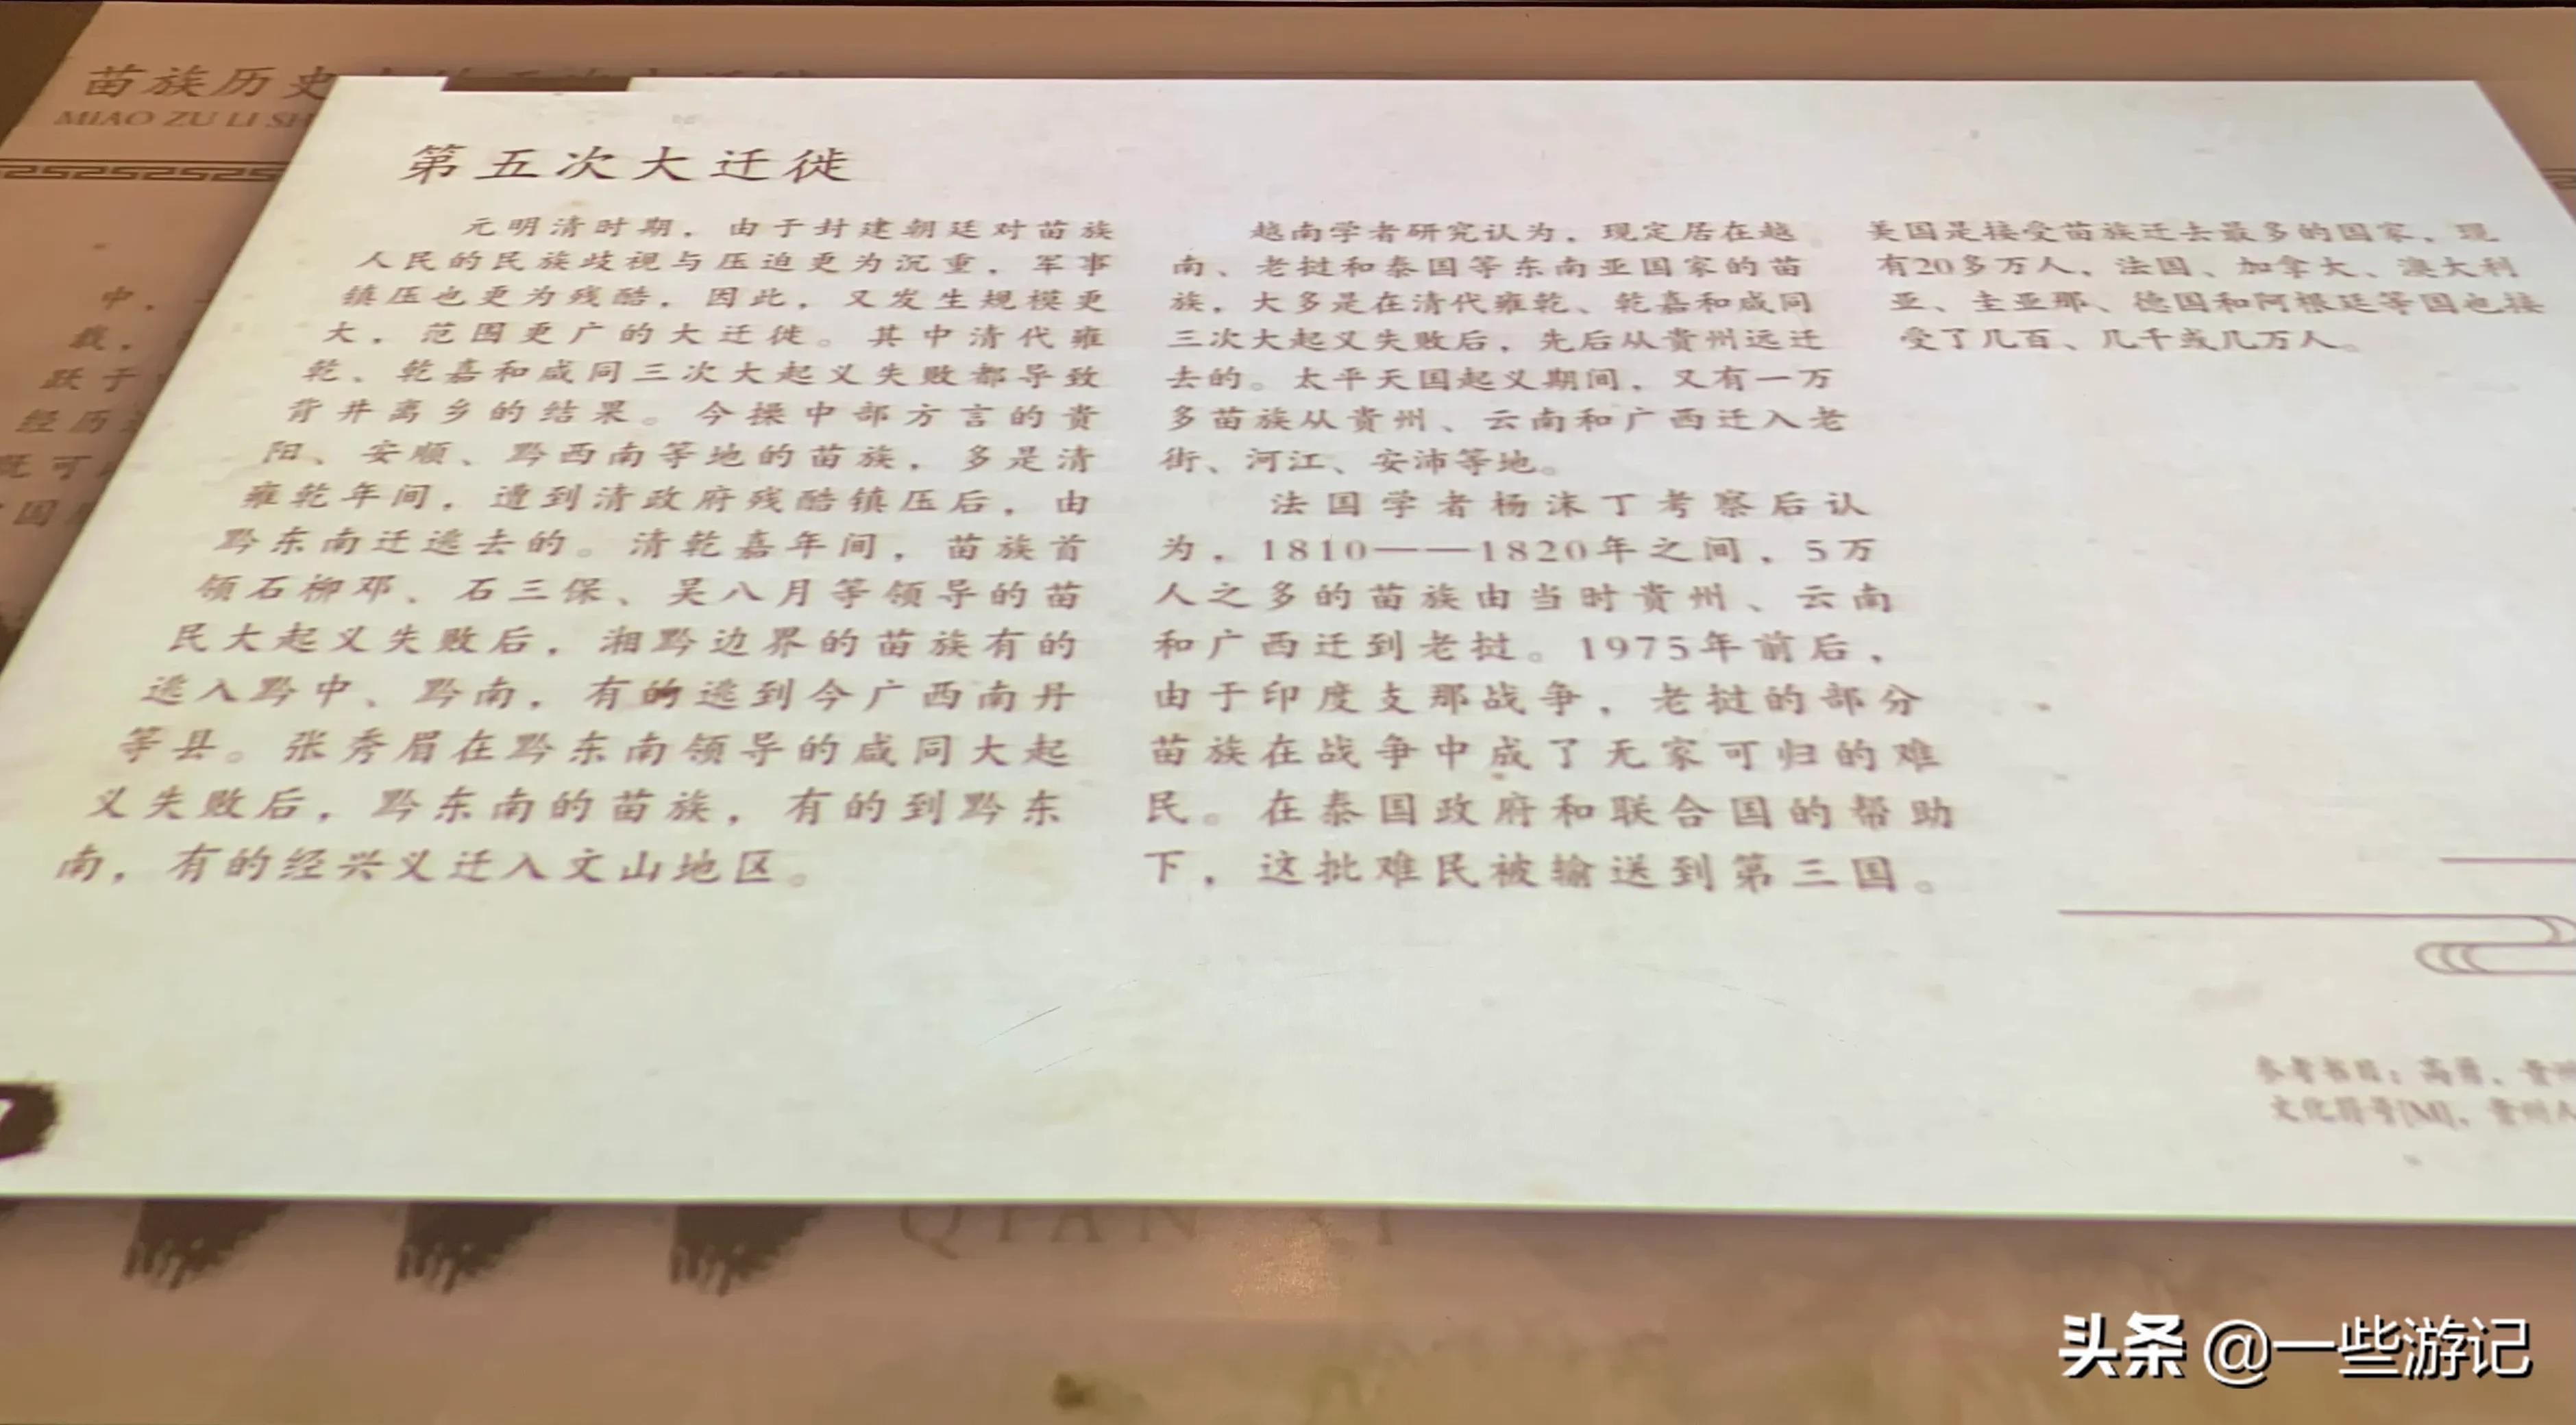 苗族历史
MIAO ZU LI SH
第五次大迁徙
元明清时期，由于封建朝廷对苗族
人民的民族歧视与压迫更为沉重，军事
镇压也更为残酷，因此，又发生规模更
大，范围更广的大迁徙。其中清代雍
乾、乾嘉和咸同三次大起义失败都导致
背井离乡的结果。今操中部方言的贵
阳、安顺、黔西南等地的苗族，多是清
雍乾年间，遭到清政府残酷镇压后，由
黔东南迁逃去的。清乾嘉年间，苗族首
领石柳邓、石三保、吴八月等领导的苗
民大起义失败后，湘黔边界的苗族有的
逃入黔中、黔南，有的逃到今广西南丹
等县。张秀眉在黔东南领导的咸同大起
义失败后，黔东南的苗族，有的到黔东
南，有的经兴义迁入文山地区。
越南学者研究认为，现定居在越
南、老挝和泰国等东南亚国家的苗
族，大多是在清代雍乾、乾嘉和咸同
三次大起义失败后，先后从贵州远迁
去的。太平天国起义期间，又有一万
多苗族从贵州、云南和广西迁入老
街、河江、安沛等地。
法国学者杨沫丁考察后认
为，1810——1820年之间，5万
人之多的苗族由当时贵州、云南
和广西迁到老挝。1975年前后，
由于印度支那战争，老挝的部分
苗族在战争中成了无家可归的难
民。在泰国政府和联合国的帮助
下，这批难民被输送到第三国。
美国是接受苗族迁去最多的国家，现
有20多万人，法国、加拿大、澳大利
亚、圭亚那、德国和阿根廷等国也接
受了几百、几千或几万人。
中，
跃于
经历
既可
国
参考书目：
文化符号[M]，贵州人
QIAN XI
头条 @一些游记